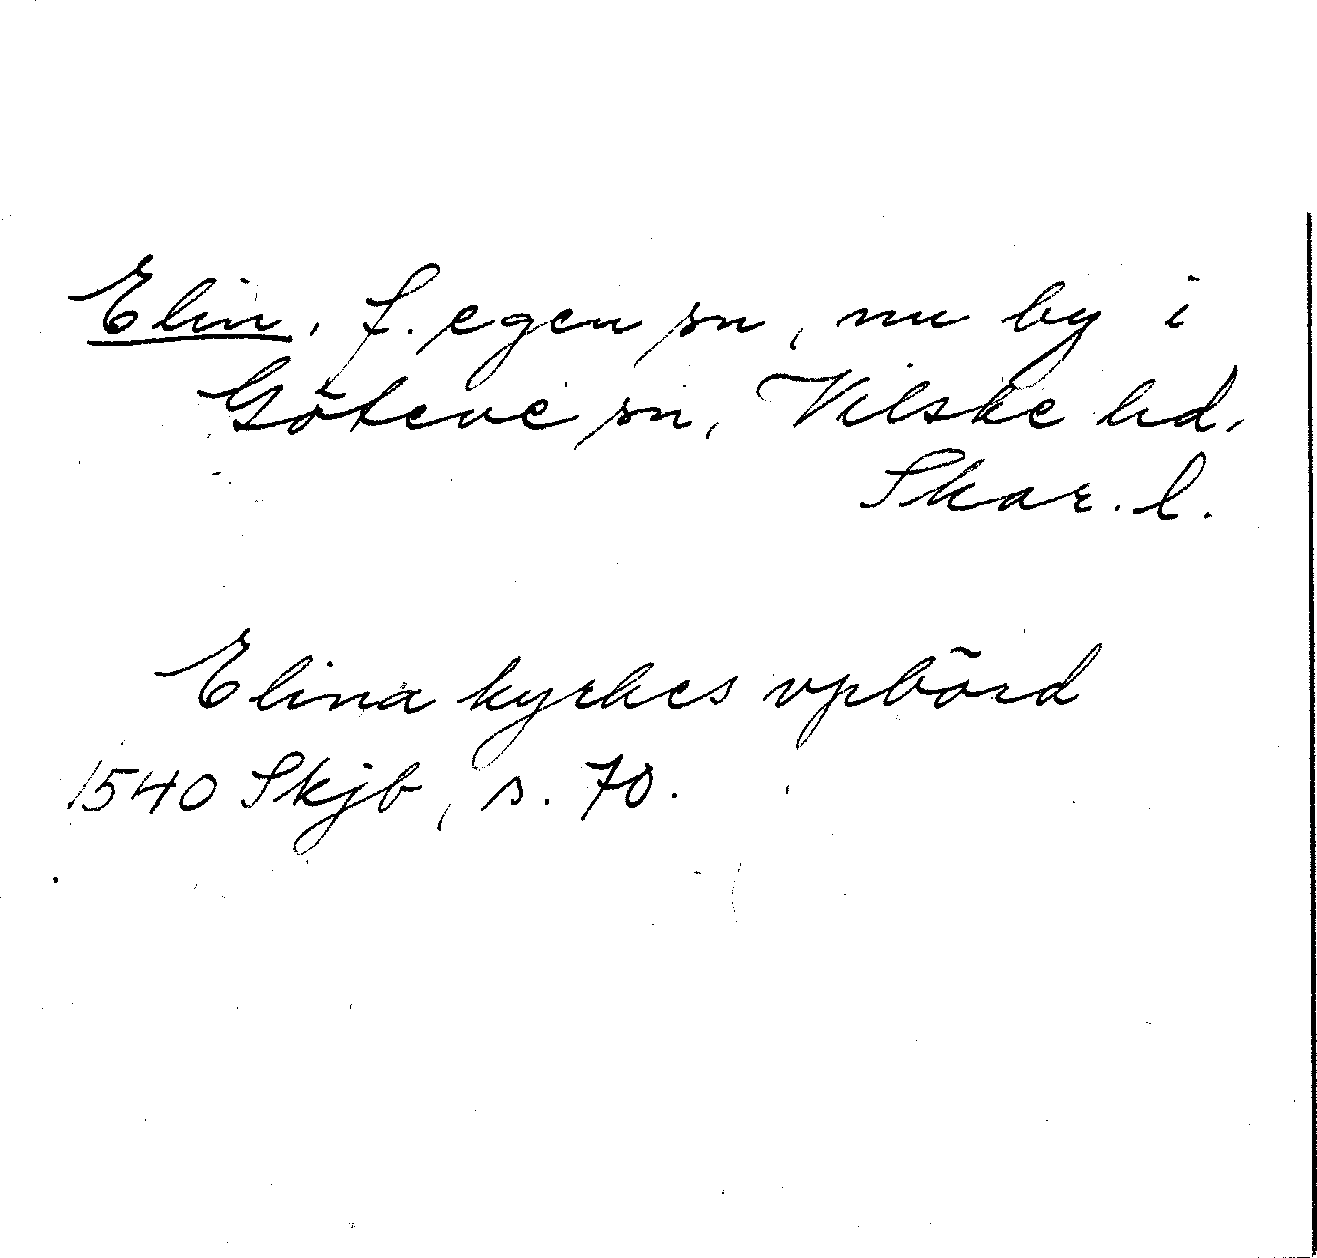 Elin, f. egen sn, nu by i
Göteve sn, Vilske hd,
Skar. l.
Elina kyrkes vpbörd
1540 Skjb, s. 70.